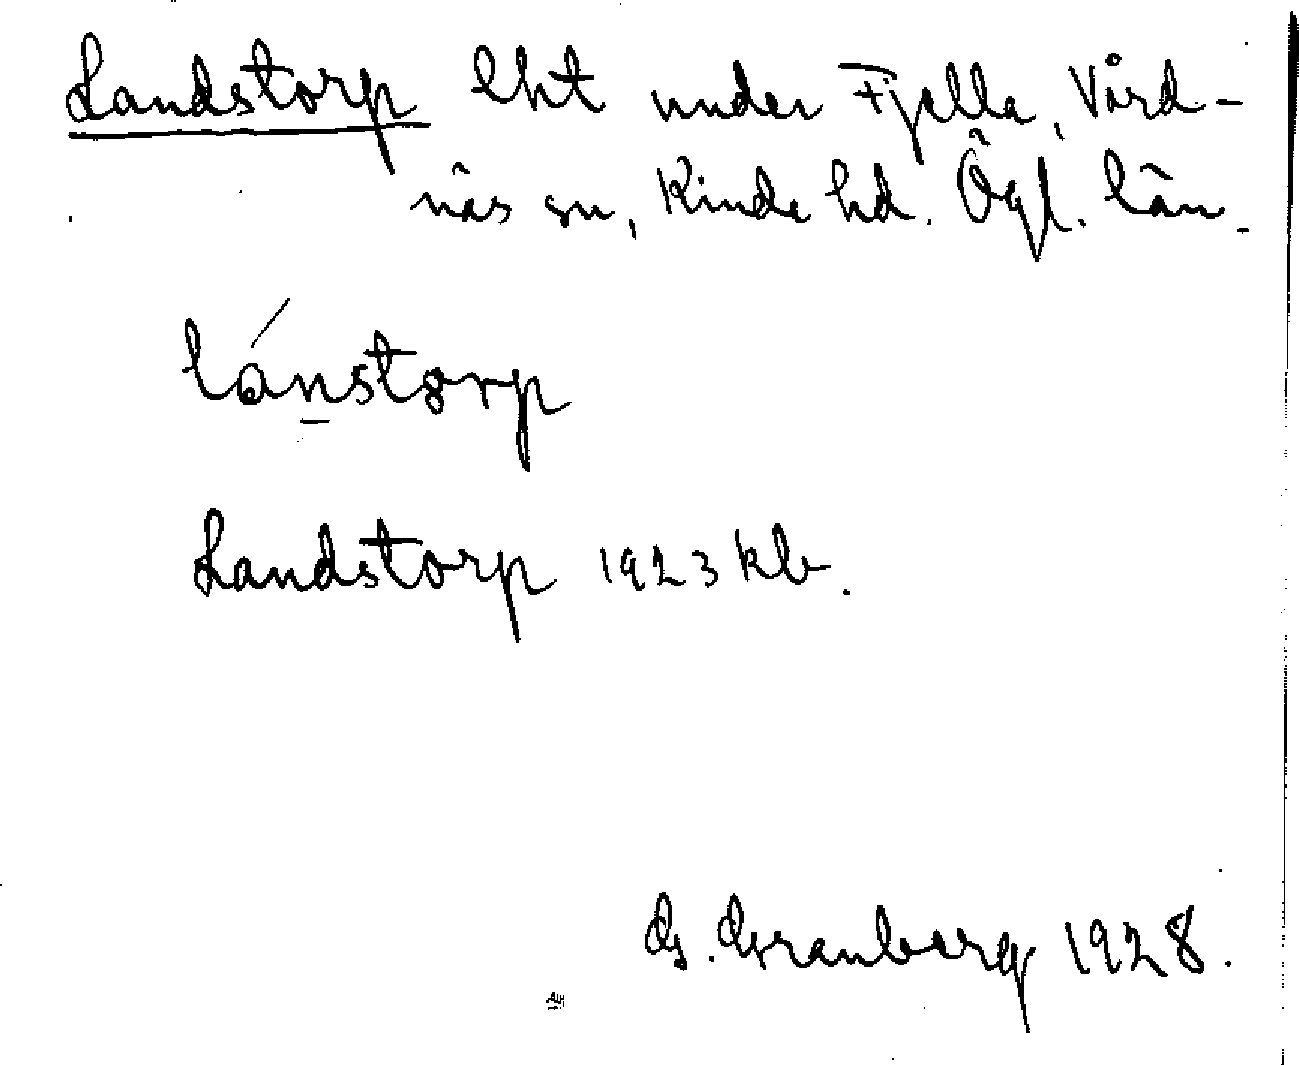 Landstorp lht under Fjella, Vård-
näs sn, Kinda hd. Ögl. län.
lánstorp
Landstorp 1923 kb.
G. Granberg 1928.